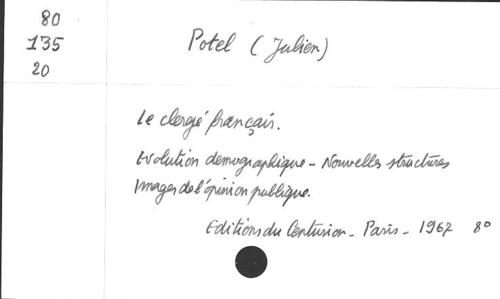 80
135
20
Potel (Julien)
Le clergé français.
Evolution démographique - Nouvelles structures
Images de l'opinion publique.
Editions du Centurion - Paris - 1967 8º